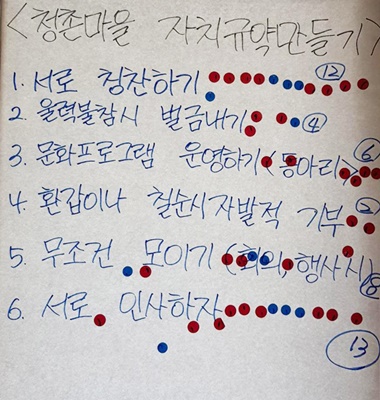 <청존마을 자치규약만들기>
1. 서로 칭찬하기 ⑫
2. 울력불참시 벌금내기 ④
3. 문화프로그램 운영하기 <동아리> ⑥
4. 환갑이나 칠순시 자발적 기부
5. 무조건 모이기 (회의, 행사시) 8
6. 서로 인사하자
13